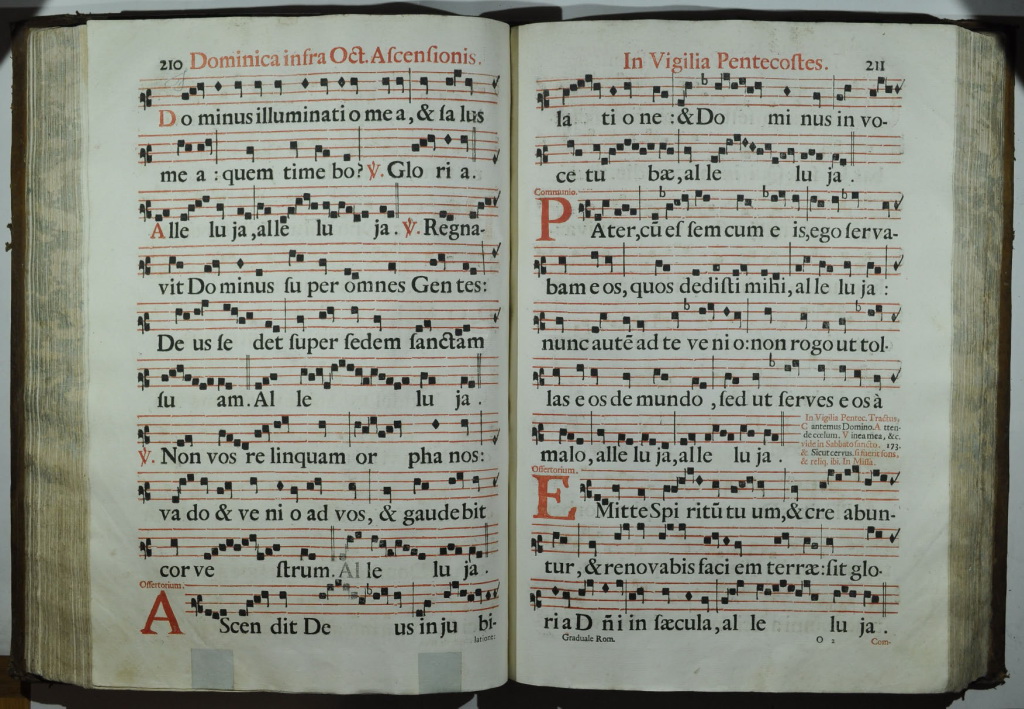 210 Dominica infra Oct. Aſcenſionis.
D o minus illuminati o me a, & ſa lus
me a : quem time bo? ℣. Glo ri a.
A lle lu ja, alle lu ja. ℣. Regna-
vit Do minus ſu per omnes Gen tes:
De us ſe det ſuper ſedem ſanctam
ſu am. Al le lu ja.
℣. Non vos re linquam or pha nos:
va do & ve ni o ad vos, & gaude bit
cor ve ſtrum. Al le lu ja.
Offertorium.
A Scen dit De us in ju bi-
latione:
In Vigilia Pentecoſtes. 211
la ti o ne : & Do mi nus in vo-
ce tu bæ, al le lu ja.
Communio.
P Ater, cũ eſ ſem cum e is, ego ſerva-
bam e os, quos dediſti mihi, al le lu ja :
nunc autẽ ad te ve ni o: non rogo ut tol-
las e os de mundo, ſed ut ſerves e os à
malo, alle lu ja, alle lu ja.
In Vigilia Pentec. Tractus,
C antemus Domino. A tten-
de cœlum. V inea mea, &c.
vide in Sabbato ſancto. 173.
& Sicut cervus. ſi fuerit fons,
& reliq. ibi. In Miſſa.
Offertorium.
E Mitte Spi ritũ tu um, & cre abun-
tur, & renovabis faci em terræ: ſit glo-
ri a D ñi in ſæcula, al le lu ja.
Graduale Rom. O 2 Com-